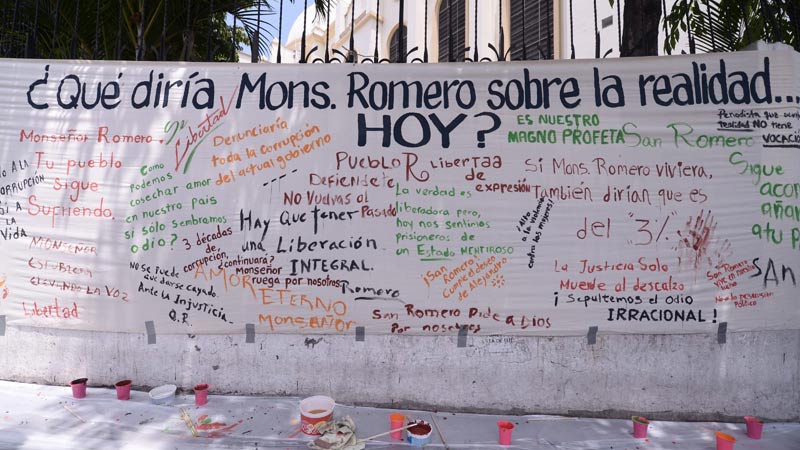 ¿Qué diría Mons. Romero sobre la realidad...
HOY?
Monseñor Romero.
Tu pueblo
Sigue
Sufriendo.
A LO
CORRUPCIÓN
A LA
Vida
MONSEÑOR
ESTUBIERA
ELEVANDO LA VOZ
Libertad
Libertad
Como
Podemos
cosechar amor
en nuestro país
si solo sembramos
odio?
NO SE PUEDE
quedarse callado.
Ante la Injusticia
Denunciaría
toda la corrupción
del actual gobierno
3 décadas
de
corrupción,
¿continuará?
AMOR
Monseñor
ruega por nosotros
ETERNO
MONSEÑOR
Hay Que tener
una Liberación
INTEGRAL.
Romero
Pueblo
Defiendete
NO Vuevas al
Pasado
Libertad
de
expresión
La verdad es
liberadora pero,
hoy nos sentimos
prisioneros de
un Estado MENTIROSO
¡San Romero,
Cumple el deseo
de Alejandro!
San Romero Pide a Dios
Por nosotros
ES NUESTRO
MAGNO PROFETA
¡Alto
a la violencia
contra las mujeres!
San Romero
Si Mons. Romero viviera,
También dirían que es
del "3%"
La Justicia Solo
Muerde al descalzo
¡Sepultemos el odio
IRRACIONAL!
Periodista que
realidad NO tiene
VOCACIÓN
Sigue
a tu p
San Romero
Vive en
SAN